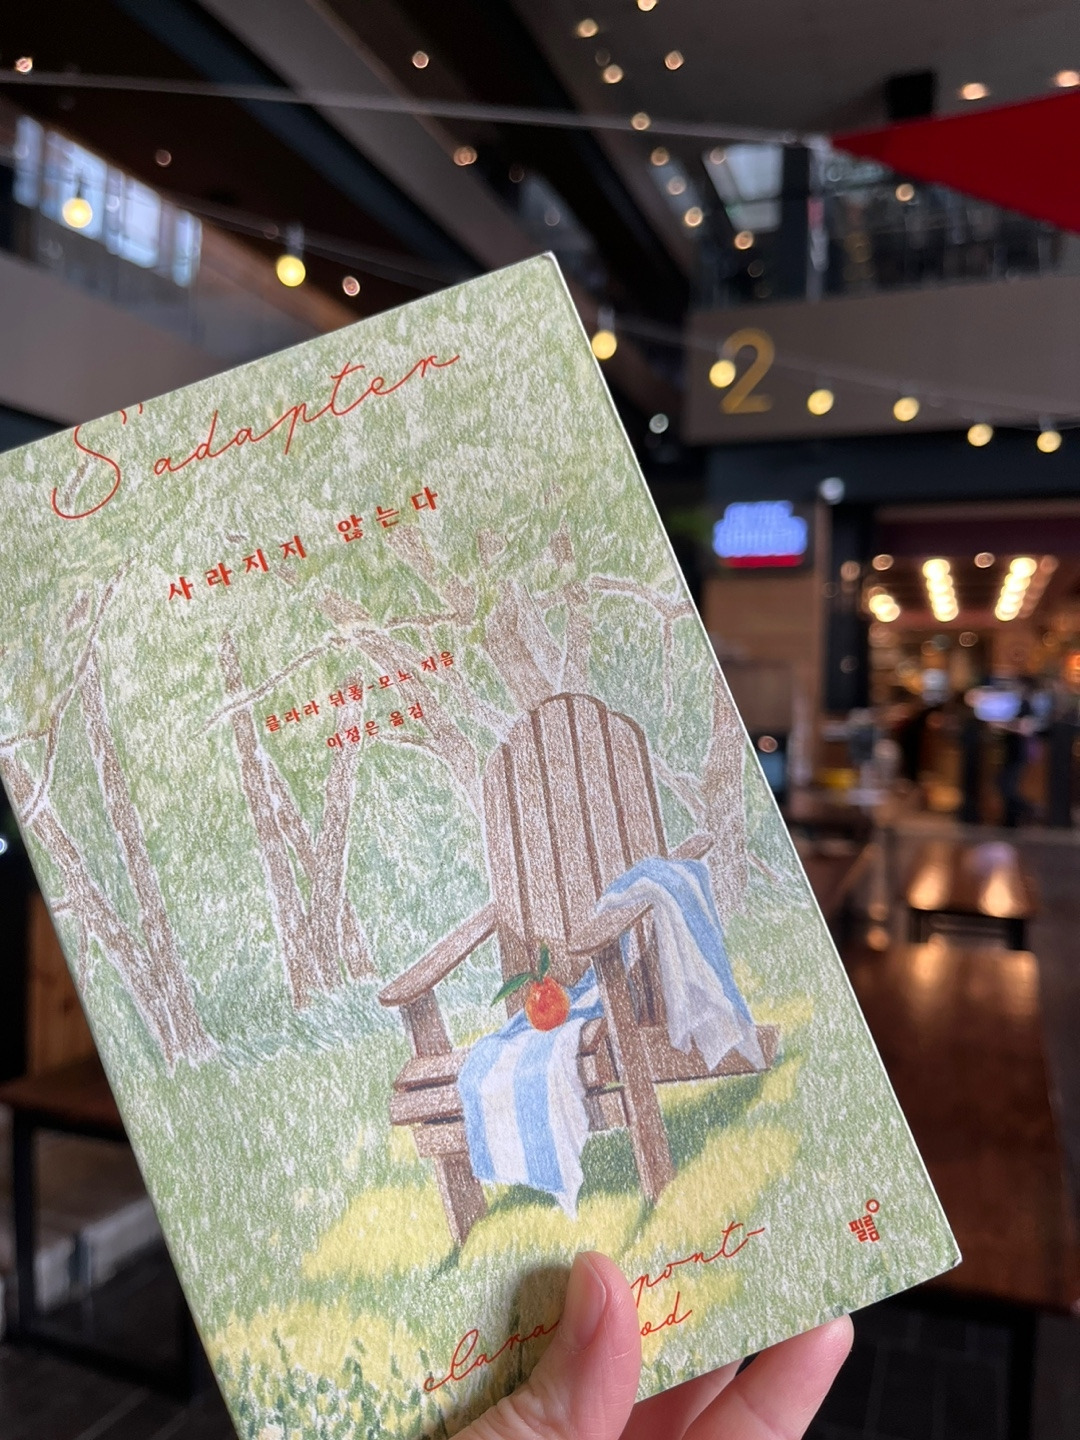 S'adapter
사라지지 않는다
클라라 뒤퐁-모노 지음
이정은 옮김
2
필름
Clara pont-
od